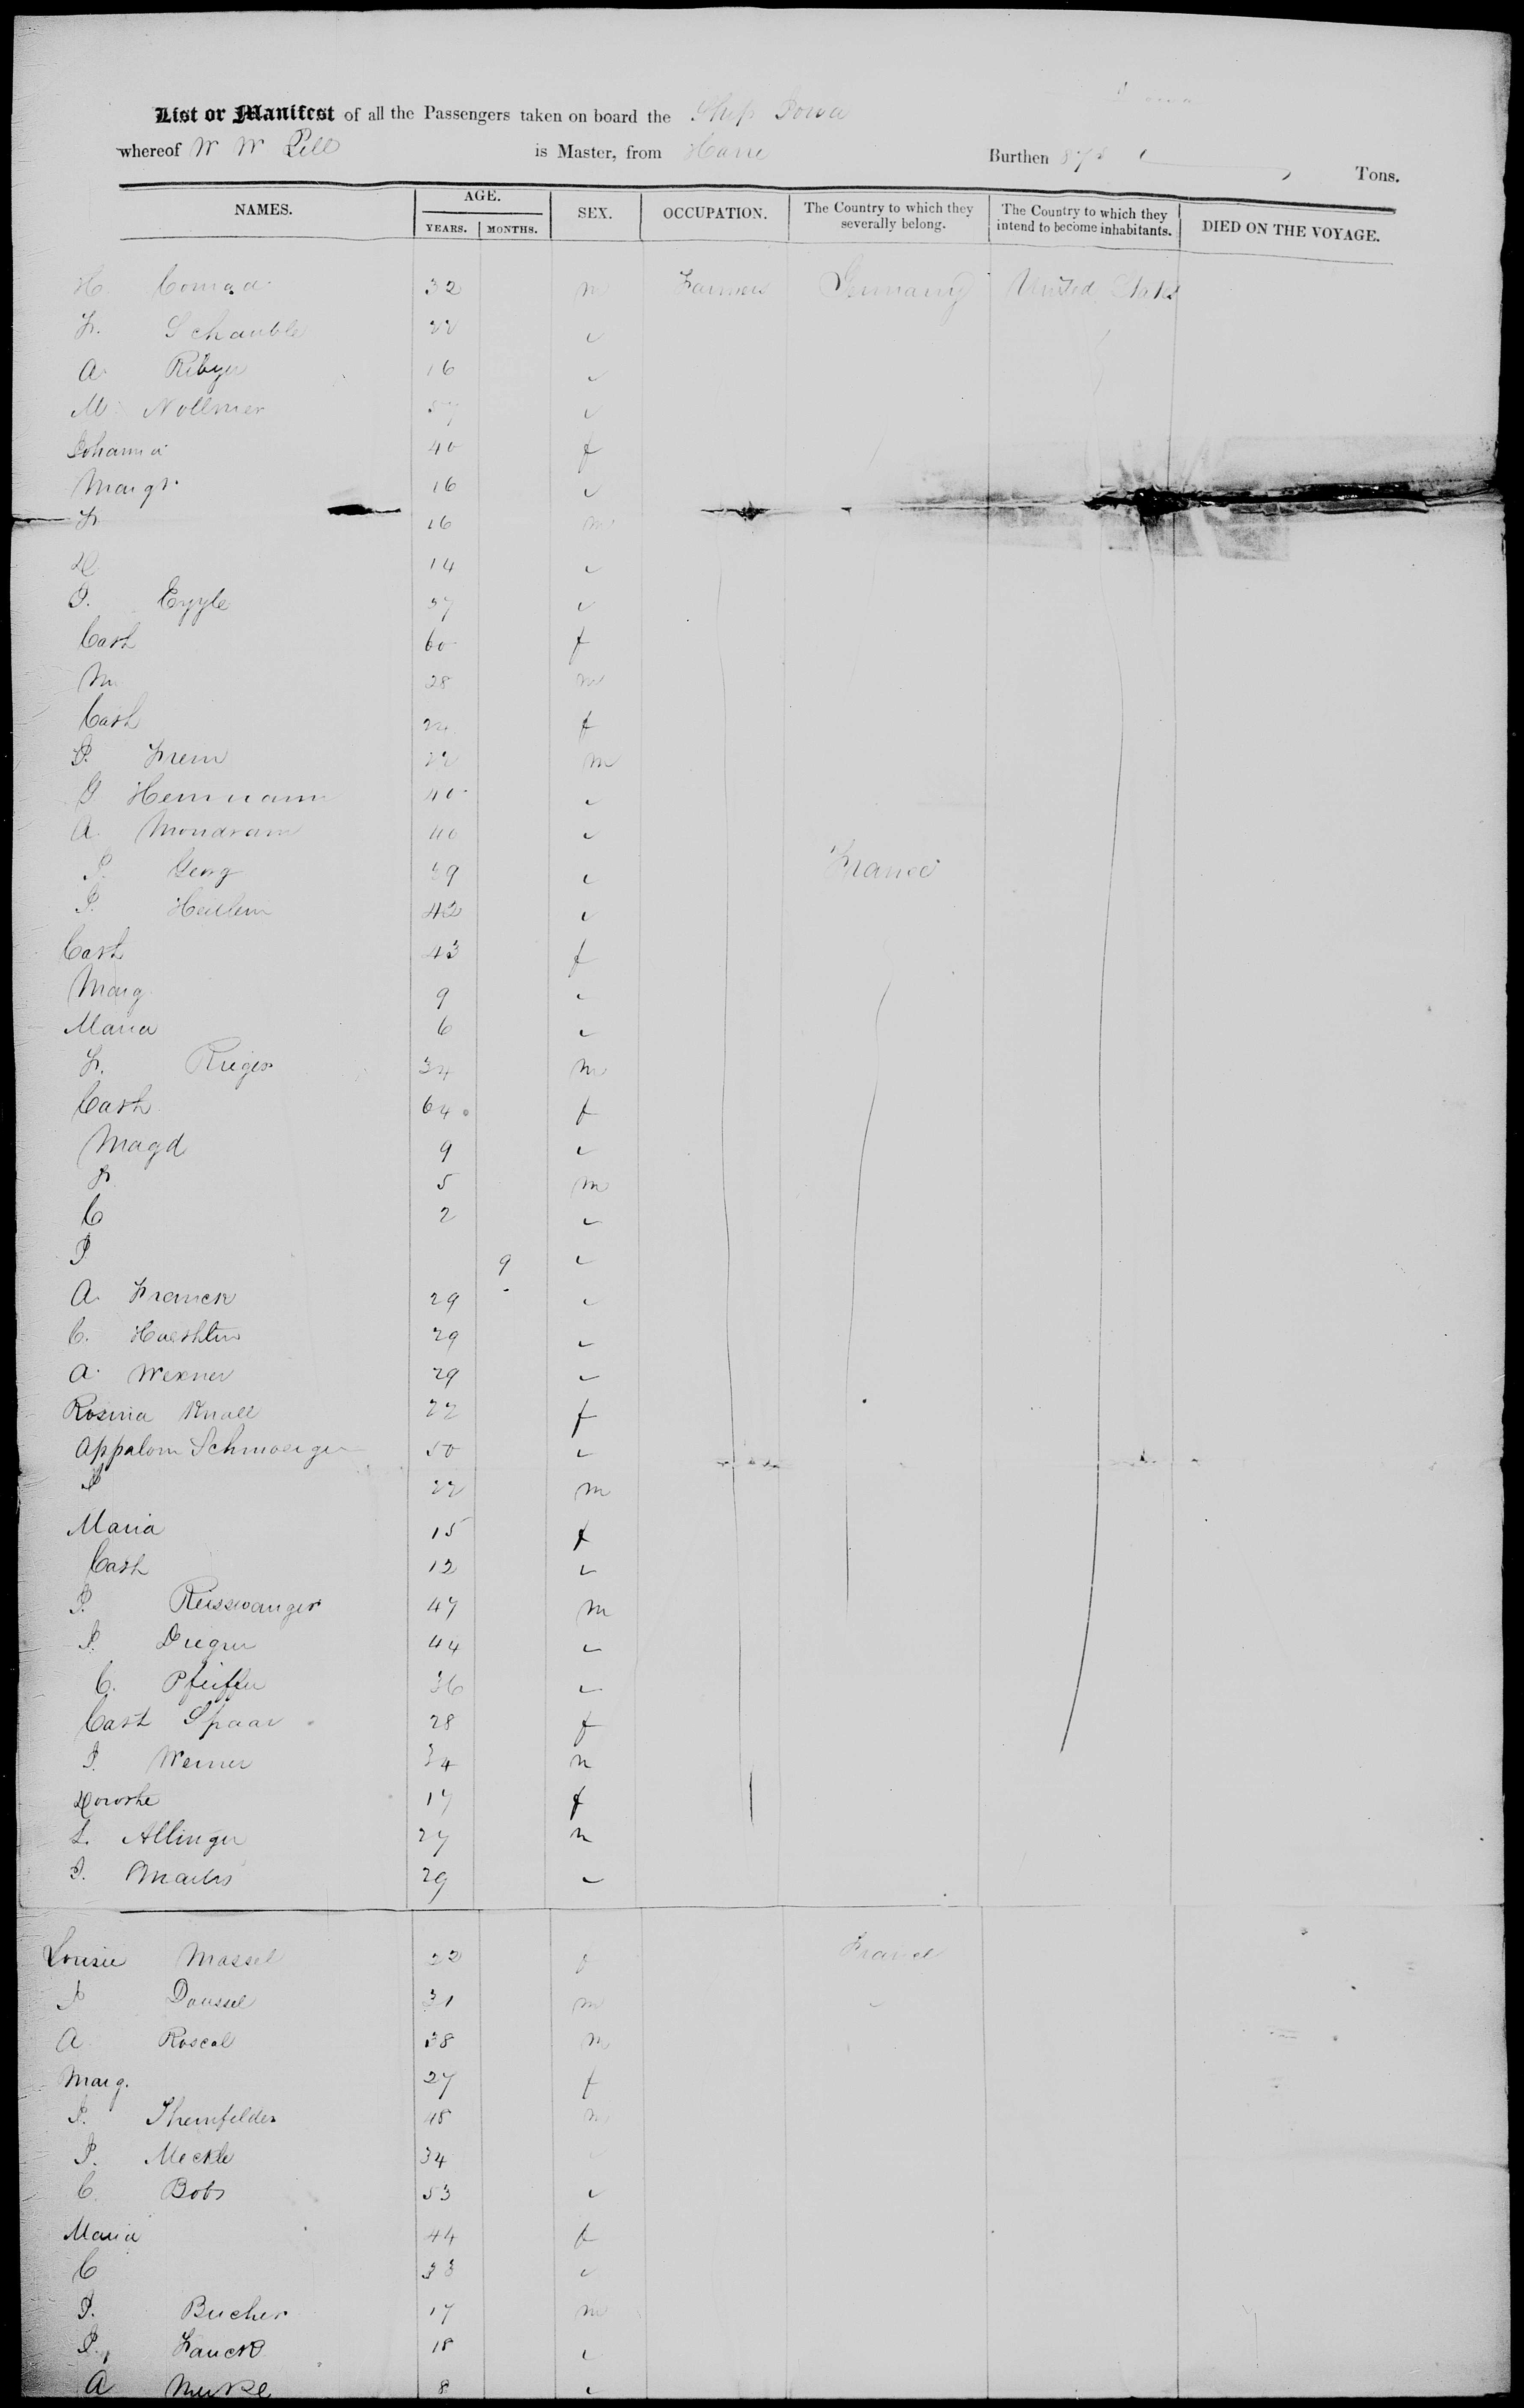 List or Manifest of all the Passengers taken on board the Ship Iowa
whereof W W Pell is Master, from Havre Burthen 87 Tons.
NAMES. AGE. YEARS. MONTHS. SEX. OCCUPATION. The Country to which they severally belong. The Country to which they intend to become inhabitants. DIED ON THE VOYAGE.
H. Conrad 32 m Farmers Germany United States
Fr. Schauble 22 "
A. 16 "
M. Nollmer 57 "
Johanna 40 f
Margr. 16 "
Fr. 16 m
D. 14 "
J. Eggle 37 "
Cath 60 f
M 28 m
Cath 24 f
J. Frem 22 m
G Hermann 40 "
A. 40 "
J. Georg 39 " France
P. Heillem 42 "
Cath 43 f
Marg 9 "
Maria 6 "
Fr. Rieger 34 m
Cath 64 f
Magd 9 "
Fr 5 m
C 2 "
J 9 "
A. Franck 29 "
C. 29 "
A. Wexner 29 "
Rosina Knall 22 f
Appalom 50 "
J 22 m
Maria 15 f
Cath 12 "
J. Reisswanger 47 m
J. 44 "
C. Pfeiffer 36 "
Cath Spaar 28 f
J. Werner 34 m
Dorothe 17 f
L. Allinger 27 m
J. 29 "
Louise Massel 22 f France
J Doussel 31 m "
A Roscol 38 m
Marg. 27 f
J. 48 m
J. Meckle 34
C. Bobs 53 "
Maria 44 f
C 33 "
J. Bucher 17 m
J. Fauck 18 "
A 8 "